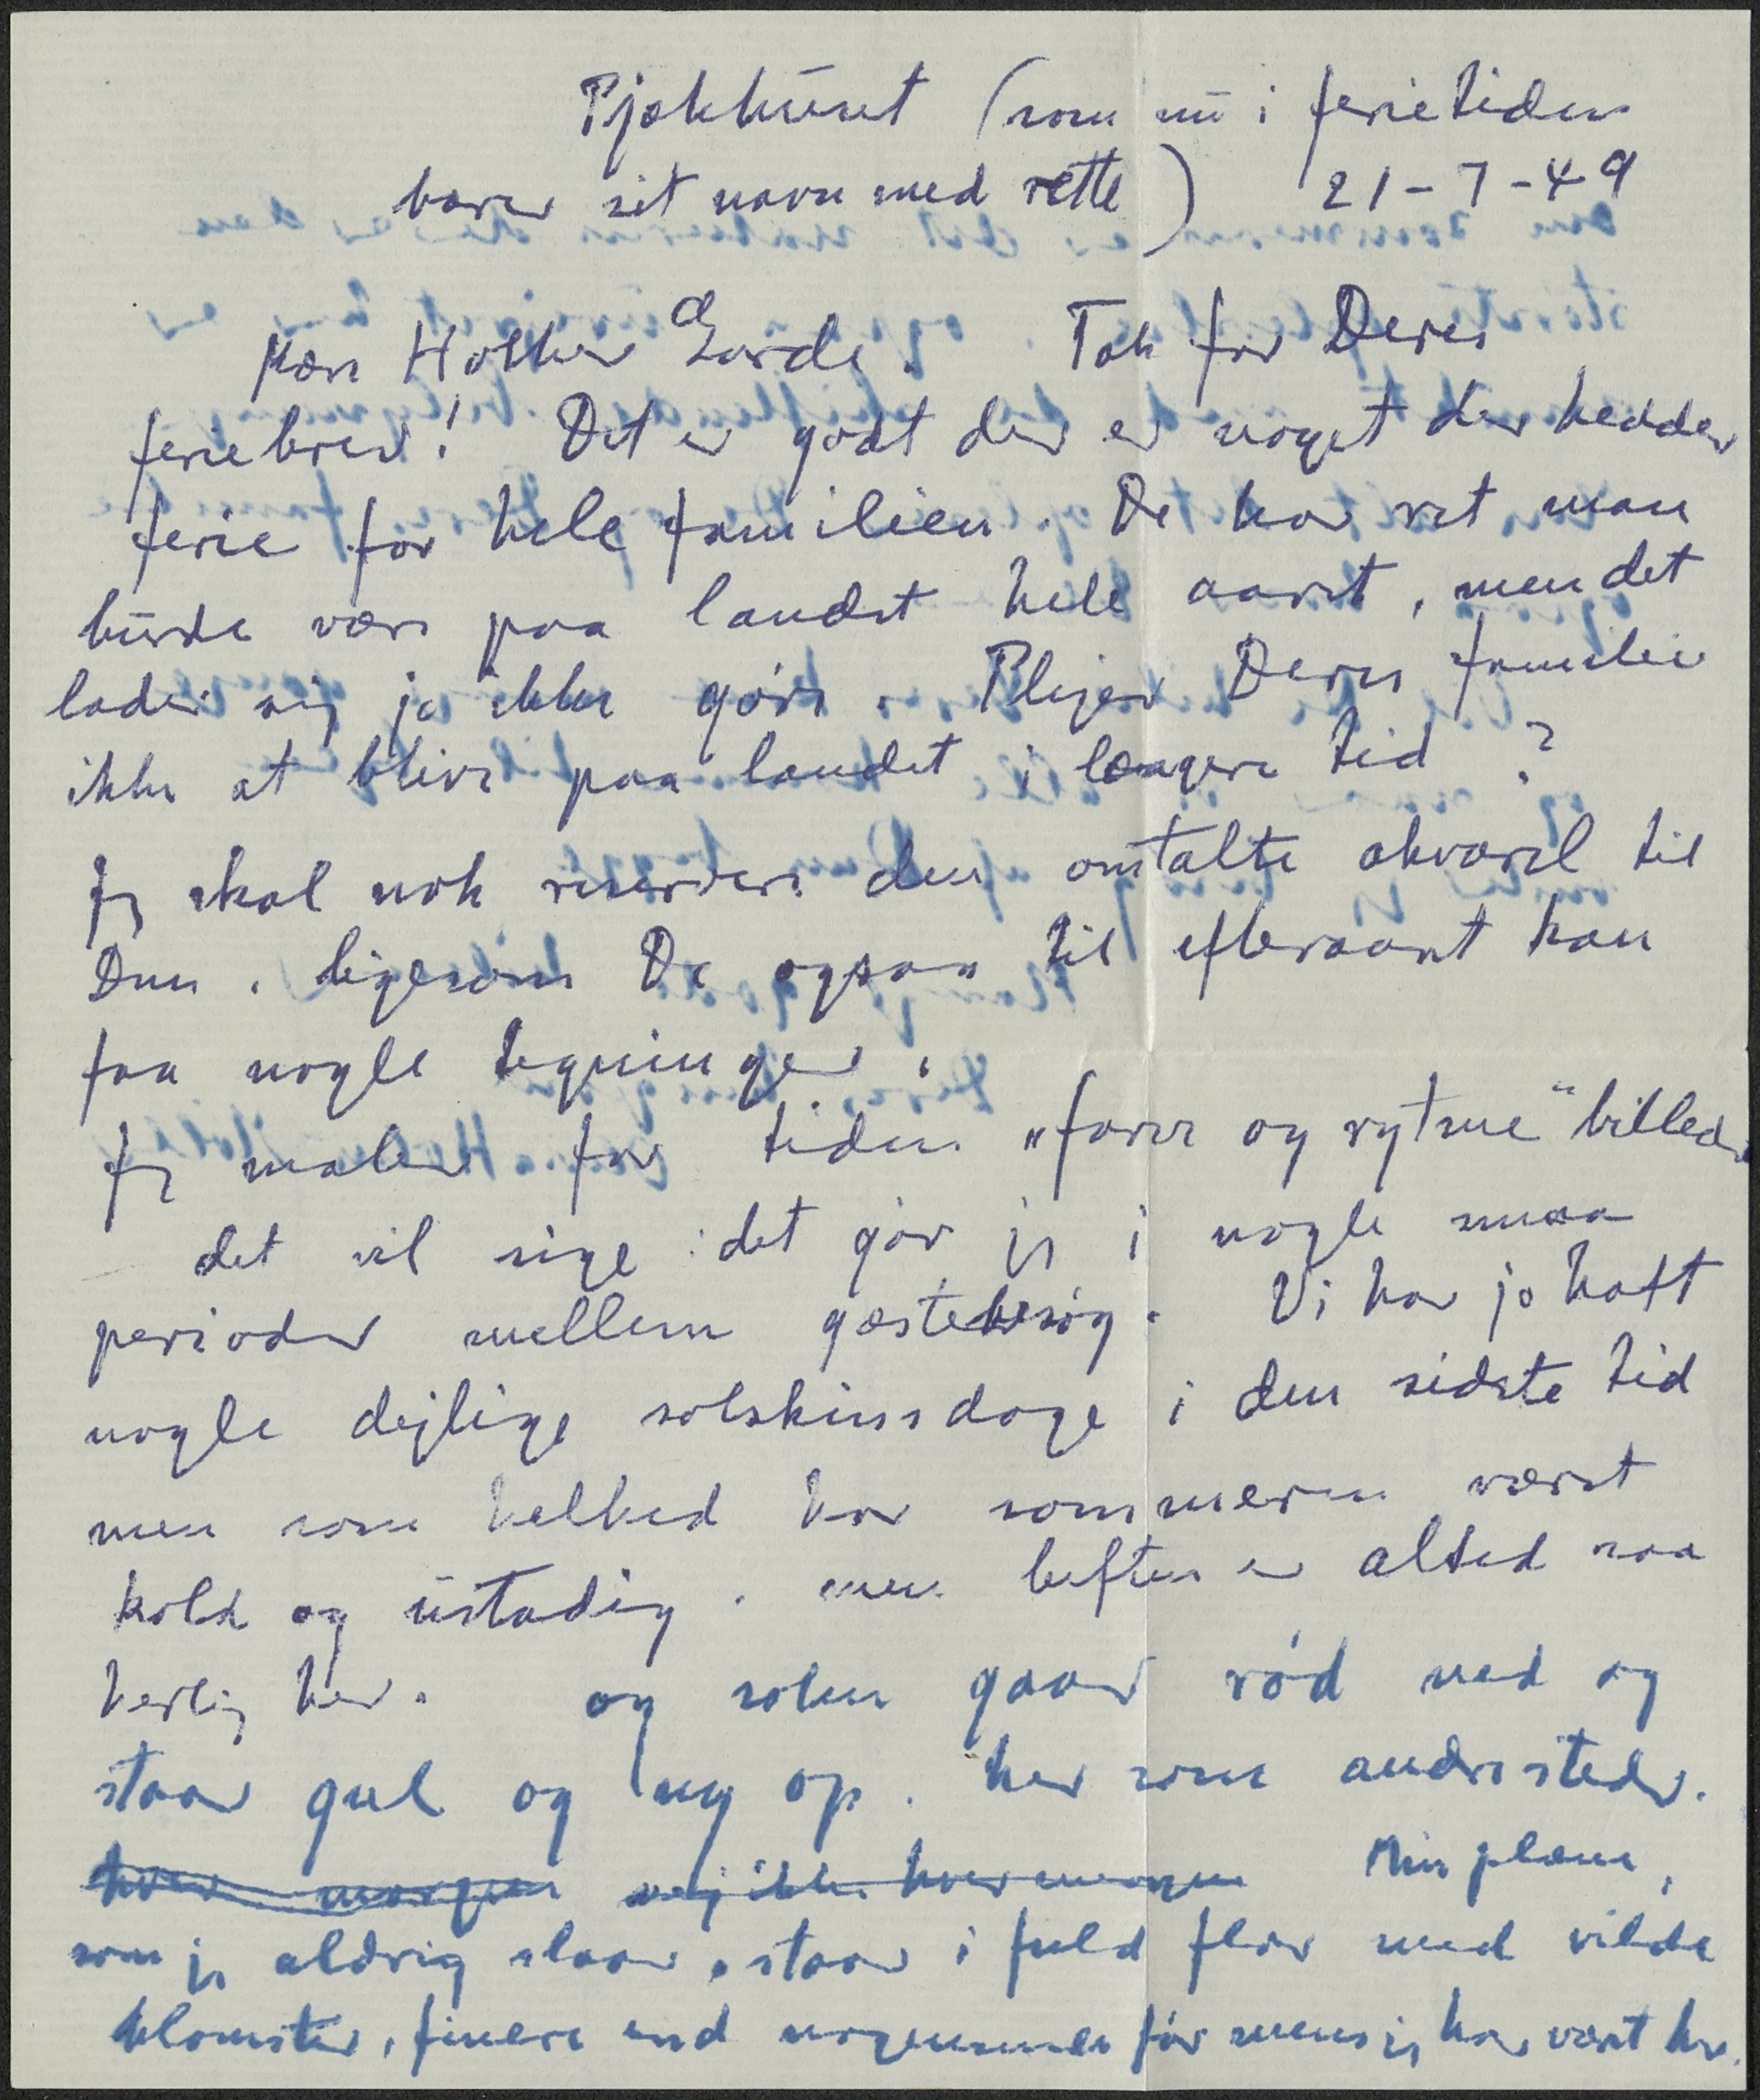 Pjækkhuset (som nu i ferietiden
bærer sit navn med rette) 21-7-49
Kære Holther Garde. Tak for Deres
feriebrev! Det er godt der er noget der hedder
ferie for hele familien. De har ret man
burde være paa landet hele aaret, men det
lader sig jo ikke gøre. Plejer Deres familie
ikke at blive paa landet i længere tid?
Jeg skal nok reservere den omtalte akvarel til
Dem, ligesom De ogsaa til efteraaret kan
faa nogle tegninger.
Jeg maler for tiden „farve og rytme“ billeder
det vil sige: det gør jeg i nogle smaa
perioder mellem gæstebesøg. Vi har jo haft
nogle dejlige solskinsdage i den sidste tid
men som helhed har sommeren været
kold og ustadig. men luften er altid saa
herlig her. og solen gaar rød ned og
staar gul og ny op. her som andre steder.
hver morgen nej ikke hver morgen Min plæne,
som jeg aldrig slaar, staar i fuld flor med vilde
blomster, finere end nogensinde før mens jeg har været her.